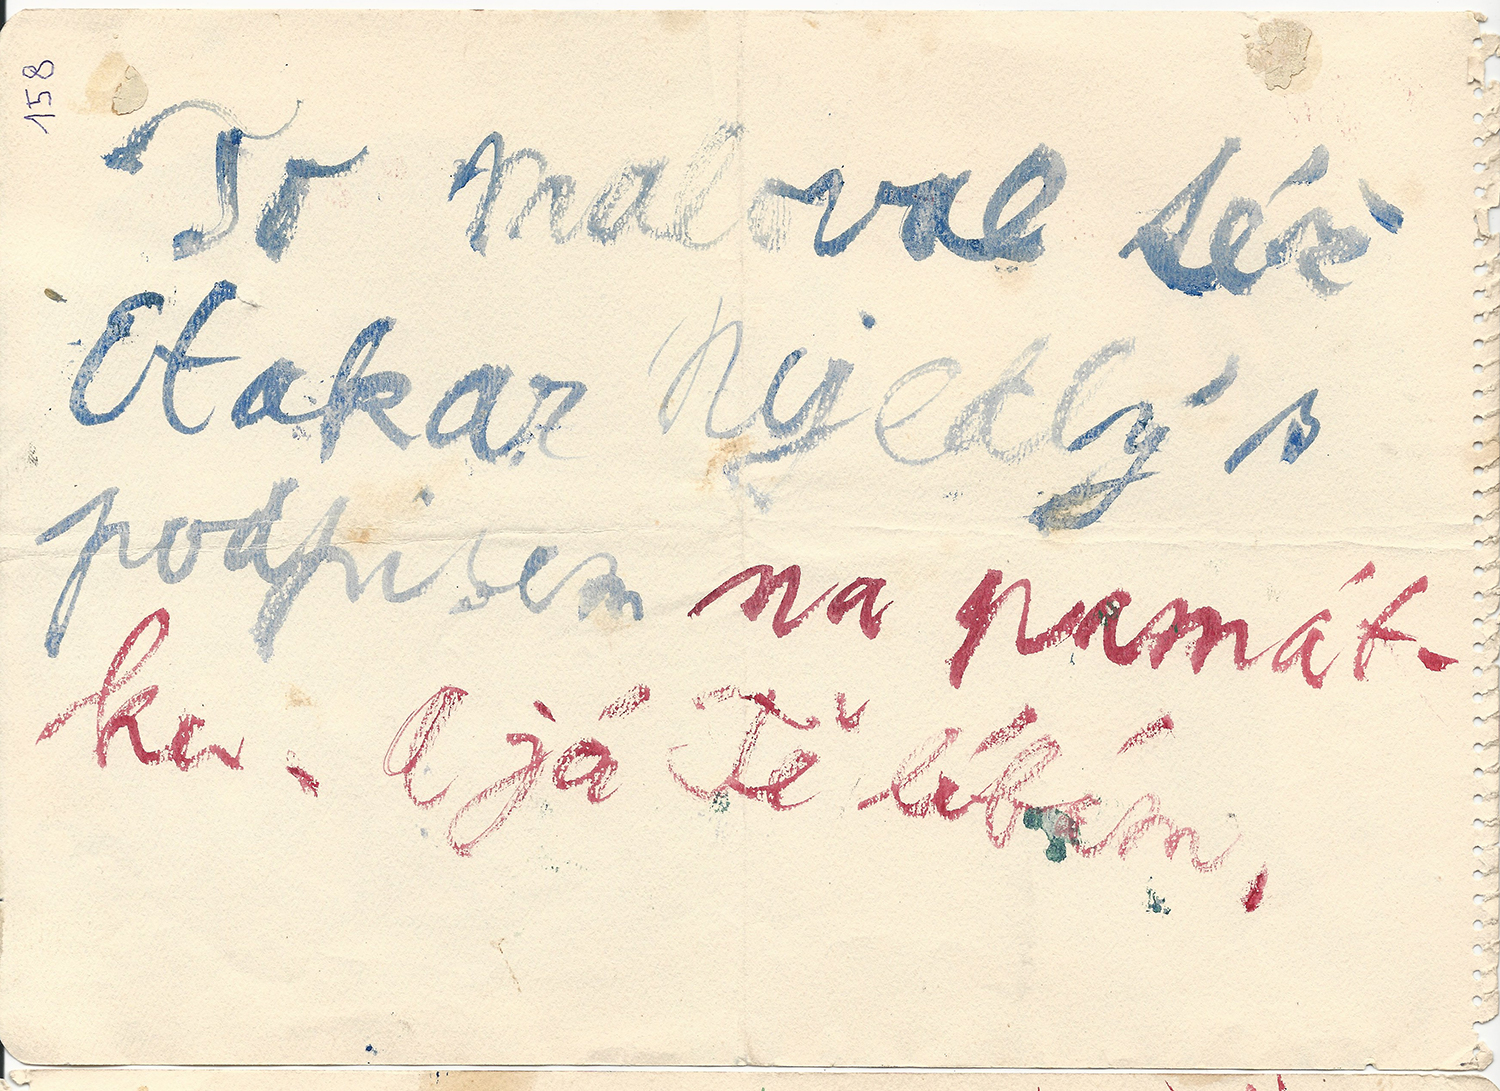 158
To maloval též
Otakar Nejedlý s
podpisem na památ-
ku. A já Tě líbám,